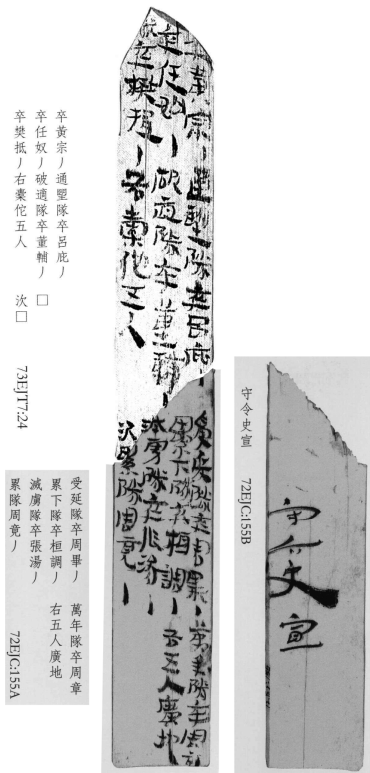 卒黃宗丿通朢隊卒呂庇丿
卒任奴丿破適隊卒董輔丿 □
卒樊抵丿右橐佗五人 次□
73EJT7:24
受延隊卒周畢丿 萬年隊卒周章
累下隊卒桓調丿 右五人廣地
滅虜隊卒張湯丿
累隊周竟丿
72EJC:155A
守令史宣 72EJC:155B
守令史宣